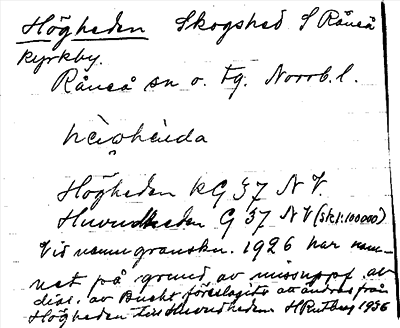 Högheden Skogshed S Råneå
kyrkby.
Råneå sn o. tg. Norrb. l.
Högheden kG 37 N V.
Huvudheden G 37 N V (skl:100000)
Vid namngranskn. 1926 har nam-
net på grund av missuppf. av
dial. av Bucht föreslagits att ändras från
Högheden till Huvudheden. H Rutberg 1936